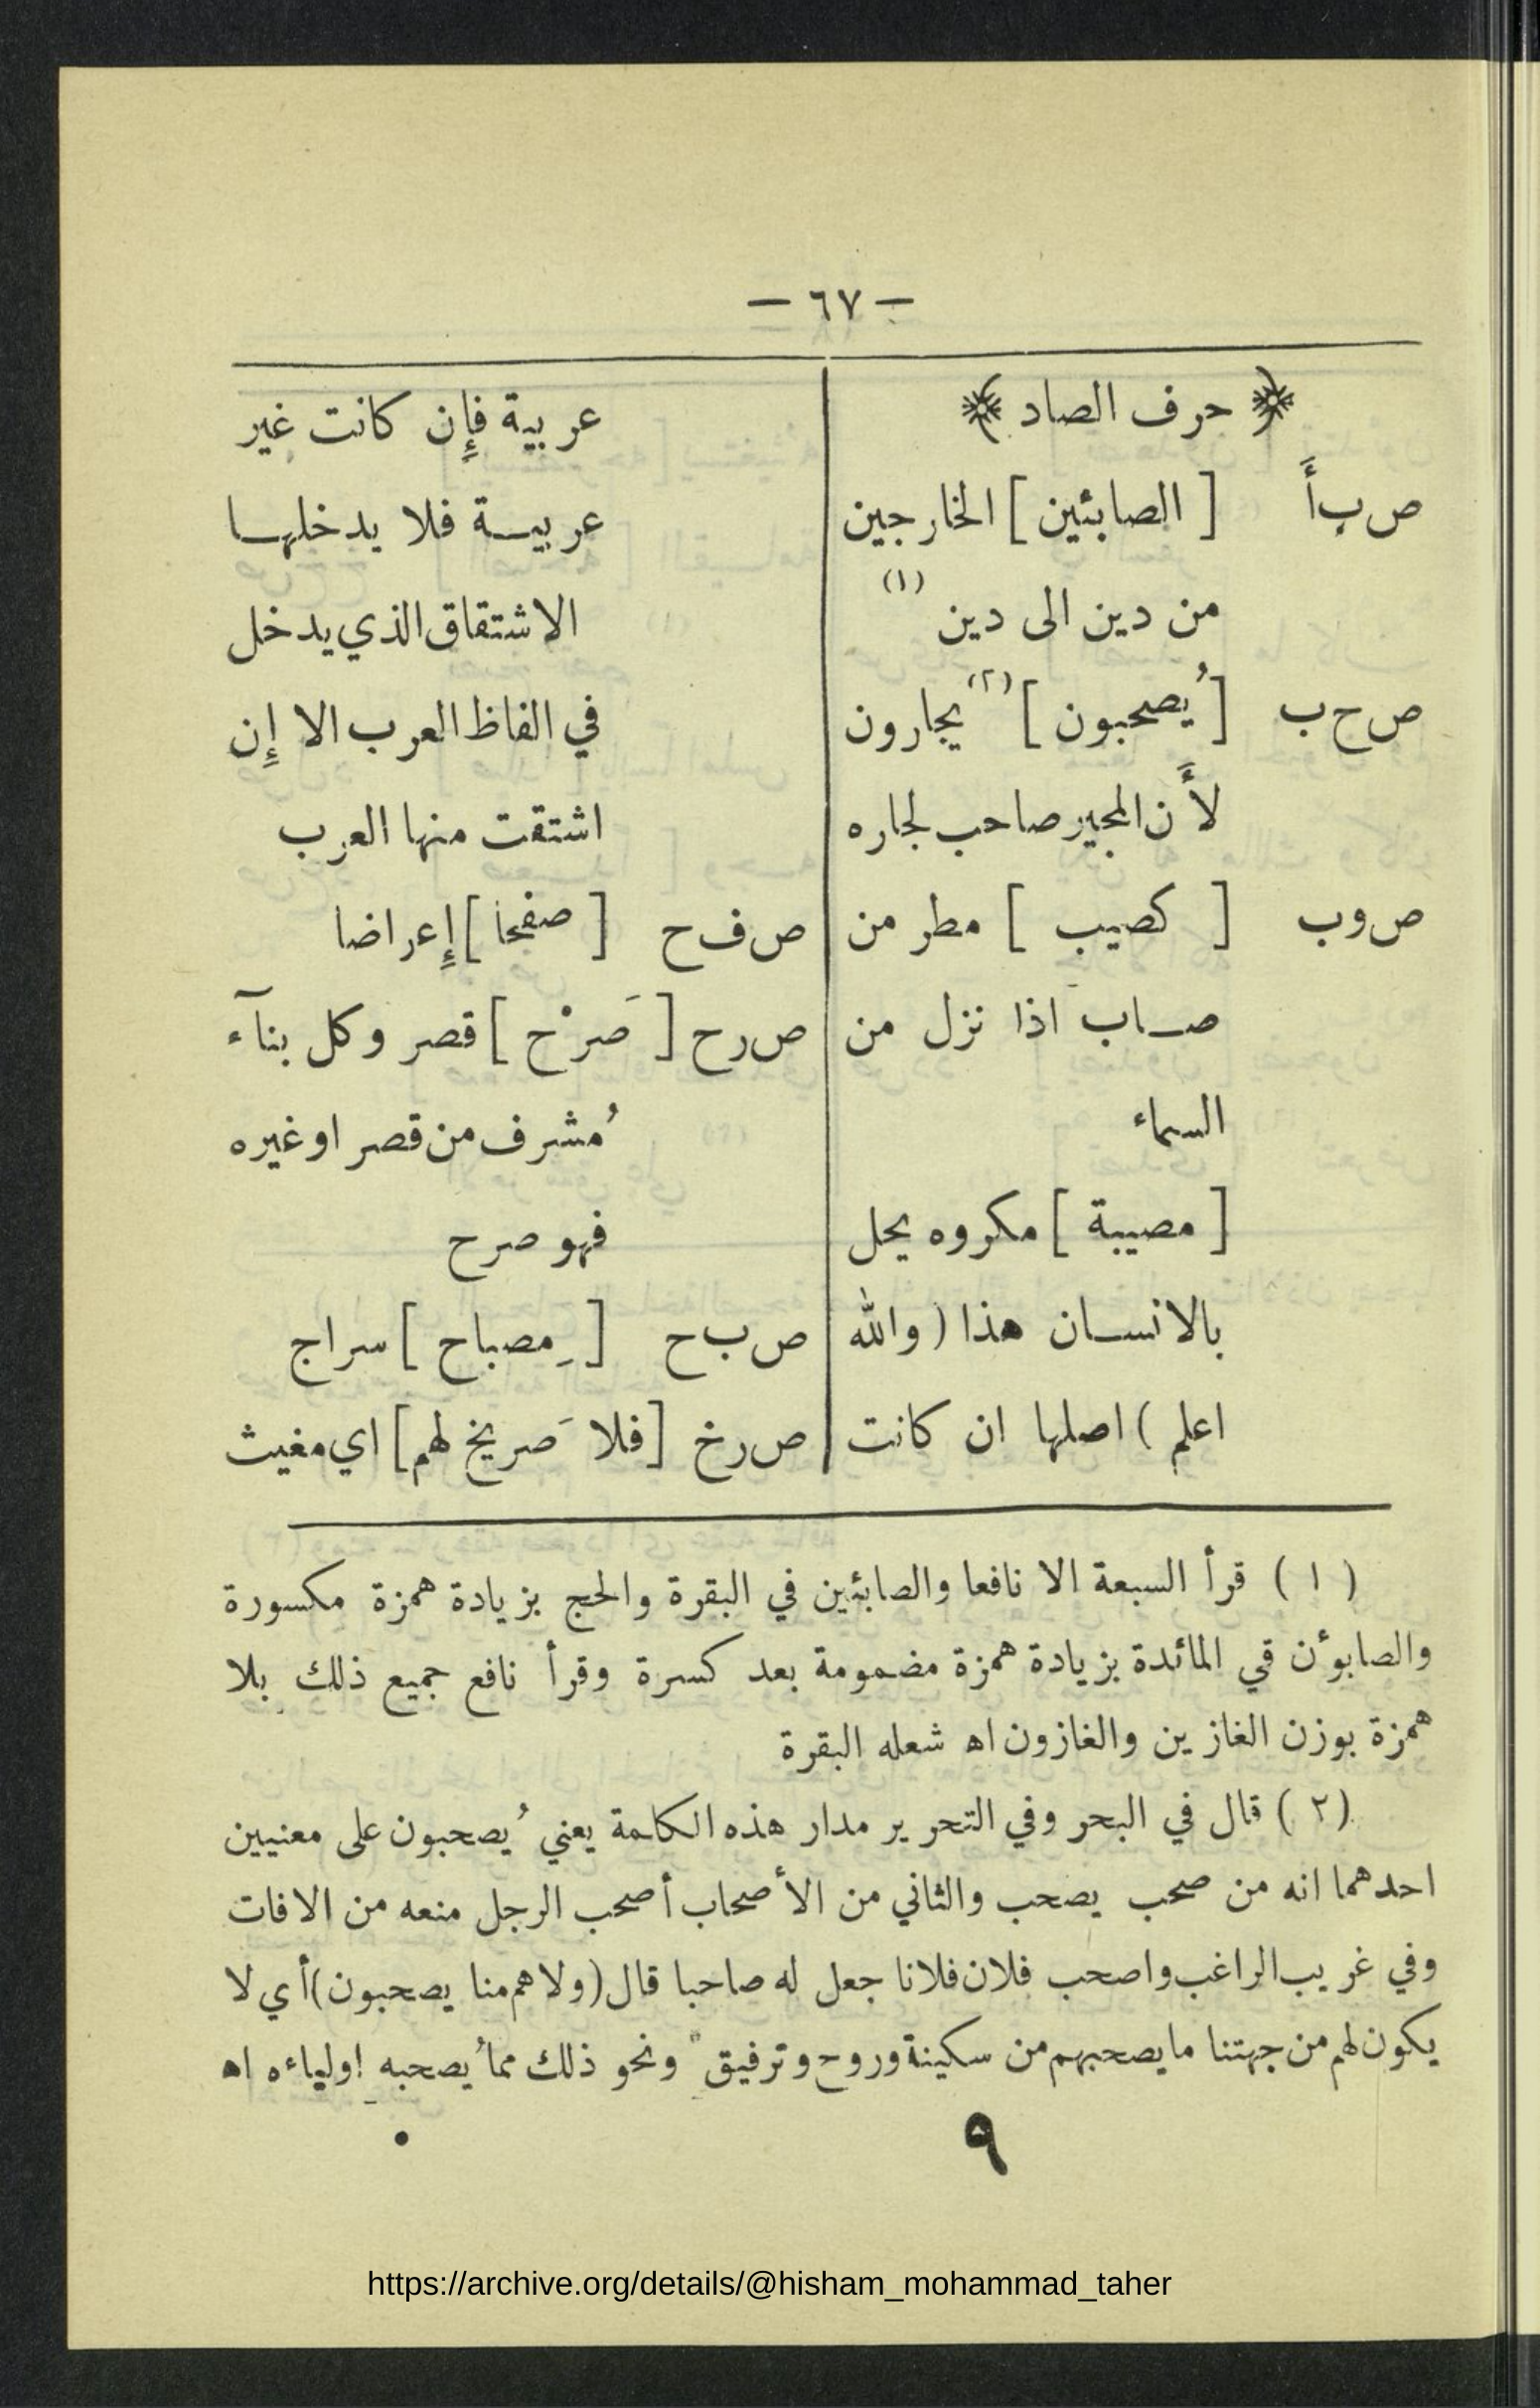 — ٦٧ —
﴿ حرف الصاد ﴾
ص ب أ [ الصابئين ] الخارجين
من دين الى دين (١)
ص ح ب [ يُصحبون ] (٢) يجارون
لأَن المجير صاحب لجاره
ص و ب [ كصيب ] مطر من
صاب اذا نزل من
السماء
[ مصيبة ] مكروه يحل
بالانسان هذا ( والله
اعلم ) اصلها ان كانت
عربية فإِن كانت غير
عربية فلا يدخلها
الاشتقاق الذي يدخل
في الفاظ العرب الا إِن
اشتقت منها العرب
ص ف ح [ صفحا ] إِعراضا
ص ر ح [ صَرْح ] قصر وكل بنآء
مُشرف من قصر او غيره
فهو صرح
ص ب ح [ مِصباح ] سراج
ص ر خ [ فلا صَريخ لهم ] اي مغيث
( ١ ) قرأ السبعة الا نافعا والصابئين في البقرة والحج بزيادة همزة مكسورة
والصابوٴن قي المائدة بزيادة همزة مضمومة بعد كسرة وقرأ نافع جميع ذلك بلا
همزة بوزن الغازين والغازون اه شعله البقرة
( ٢ ) قال في البحر وفي التحرير مدار هذه الكلمة يعني يُصحبون على معنيين
احدهما انه من صحب يصحب والثاني من الأصحاب أصحب الرجل منعه من الافات
وفي غريب الراغب واصحب فلان فلانا جعل له صاحبا قال (ولا هم منا يصحبون) أي لا
يكون لهم من جهتنا ما يصحبهم من سكينة وروح وترفيق ونحو ذلك مما يُصحبه اولياءه اه
٩
https://archive.org/details/@hisham_mohammad_taher